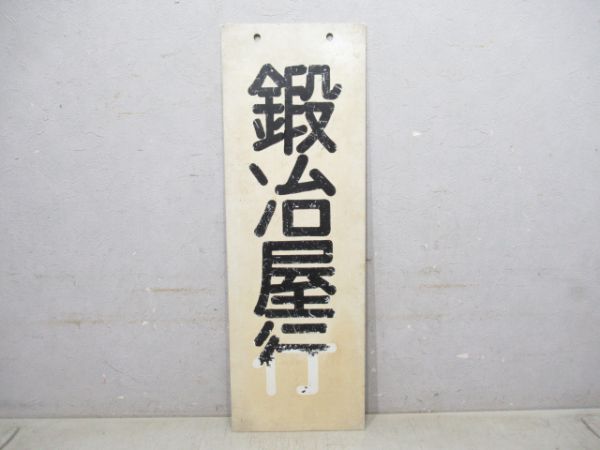 鍛冶屋行